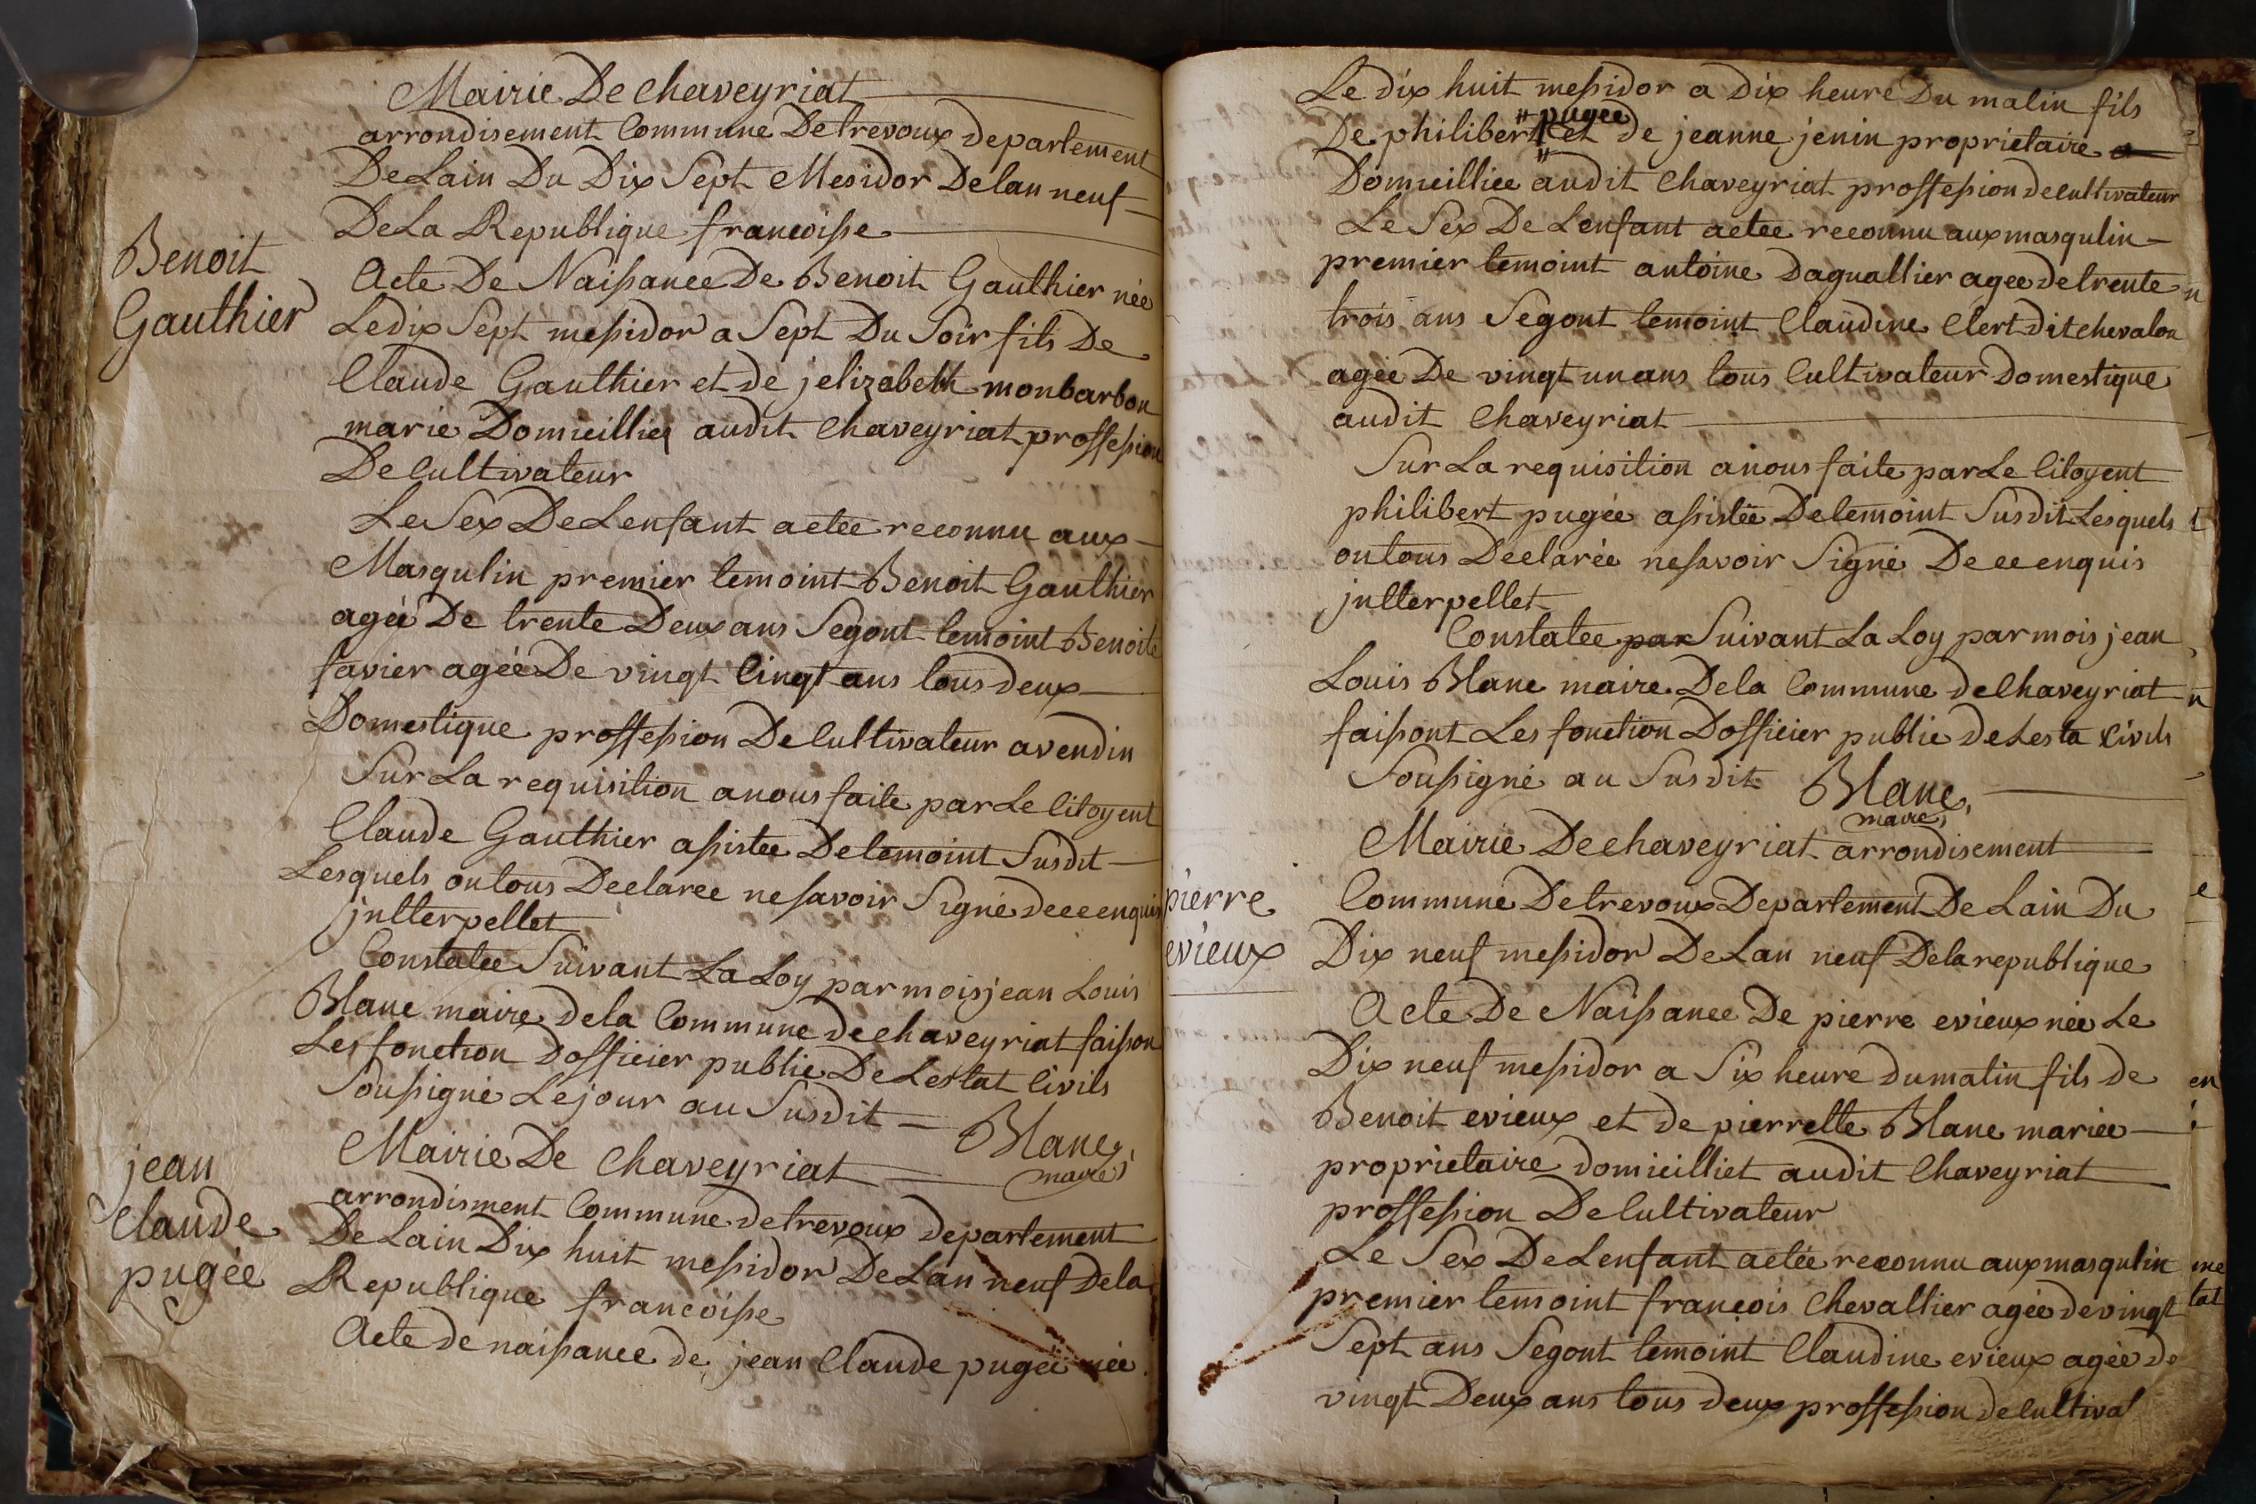 Mairie De chaveyriat
arrondisement Commune De trevoux departement
De Lain Du Dix Sept Mesidor De lan neuf
De La Republique francoisse
Benoit
Gauthier
Acte De Naissance De Benoit Gauthier née
Le dix Sept messidor a Sept Du Soir fils De
Claude Gauthier et de jelizabeth monbarbon
marie Domicillies audit chaveyriat proffession
De Cultivateur
Le Sex De Lenfant aetée reconnu aux
Masqulin premier temoint Benoit Gauthier
agée De trente Deux ans Segont temoint Benoite
favier agée De vingt Cingt ans tous deux
Domestique proffession De Cultivateur a vendin
Sur La requisition a nous faite par Le Citoyent
Claude Gauthier assistée De temoint Susdit
Lesquels on tous Declaree ne savoir Signé de ce enquis
jntterpellet
Constatee Suivant La Loy par mois jean Louis
Blanc maire de la Commune de chaveyriat faisson
Les fonction Dofficier public De Lestat Civils
Soussigné Le jour au Susdit Blanc
maire
jean
Claude
pugée
Mairie De Chaveyriat
arrondisment Commune de trevoux departement
De Lain Dix huit messidor De Lan neuf De la
Republique francoisse
Acte de naissance de jean Claude pugée née
Le dix huit messidor a Dix heure Du matin fils
pugee
De philibert et de jeanne jenin proprietaire
Domicilliee audit Chaveyriat proffession de cultivateur
Le Sex De Lenfant aetee reconnu aux masqulin
premier temoint antoine Daguallier agee de trente
trois ans Segont temoint Claudine Clert dit chevalon
agée De vingt un ans tous Cultivateur Domestique
audit Chaveyriat
Sur La requisition a nous faite par Le Citoyent
philibert pugée assistée De temoint Susdit Lesquels
on tous Declarée ne savoir Signé De ce enquis
jntterpellet
Constatee par Suivant La Loy par mois jean
Louis Blanc maire De la Commune de Chaveyriat
faissont Les fonction Dofficier public de Lesta Civils
Soussigné au Susdit Blanc
maire
pierre
evieux
Mairie De chaveyriat arrondisement
Commune De trevoux Departement De Lain Du
Dix neuf messidor De Lan neuf De la republique
Acte De Naissance De pierre evieux née Le
Dix neuf messidor a Six heure du matin fils de
Benoit evieux et de pierrette Blanc mariée
proprietaire domicilliet audit Chaveyriat
proffession De Cultivateur
Le Sex De Lenfant aetée reconnu aux masqulin
premier temoint francois Chevallier agée de vingt
Sept ans Segont temoint Claudine evieux agée de
vingt Deux ans tous deux proffession de cultivat